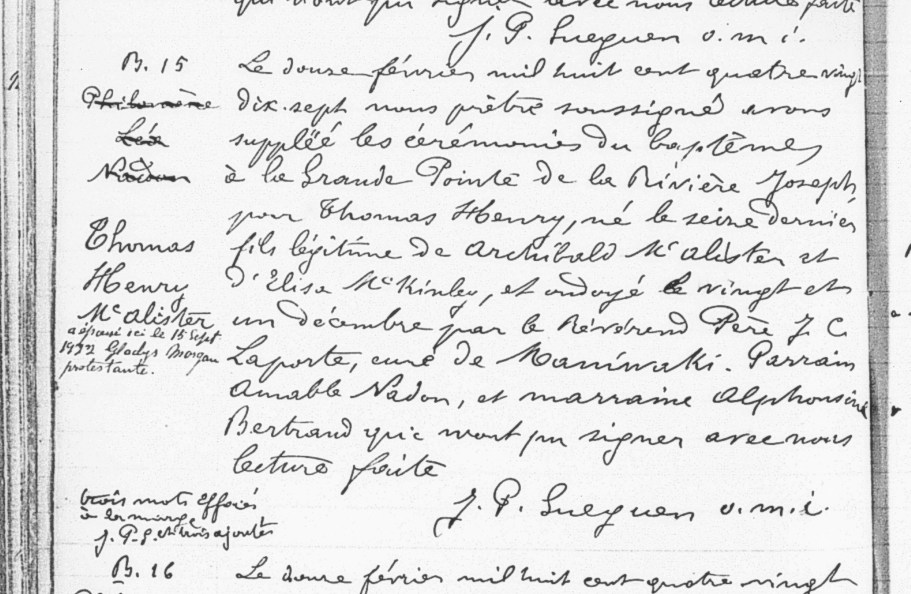 qui n'ont pu signer avec nous lecture faite
J. P. Gueguen o.m.i.
B. 15
Philomène
Léa
Nadon
Thomas
Henry
Mc alister
a épousé ici le 15 Sept
1922 Gladys Morgan
protestante.
Le douze février mil huit cent quatre vingt
dix-sept nous prêtre soussigné avons
suppléé les cérémonies du baptême
à la Grande Pointe de la Rivière Joseph
pour Thomas Henry, né le seize dernier
fils légitime de Archibald Mc alister et
d'Elisa McKinley, et ondoyé le vingt et
un décembre par le Révérend Père J C
Laporte, curé de Maniwaki. Parrain
Amable Nadon, et marraine Alphonsine
Bertrand qui n'ont pu signer avec nous
lecture faite
J. P. Gueguen o.m.i.
trois mots effacés
à la marge
J. P. G. et trois ajoutés
B. 16
Le douze février mil huit cent quatre vingt